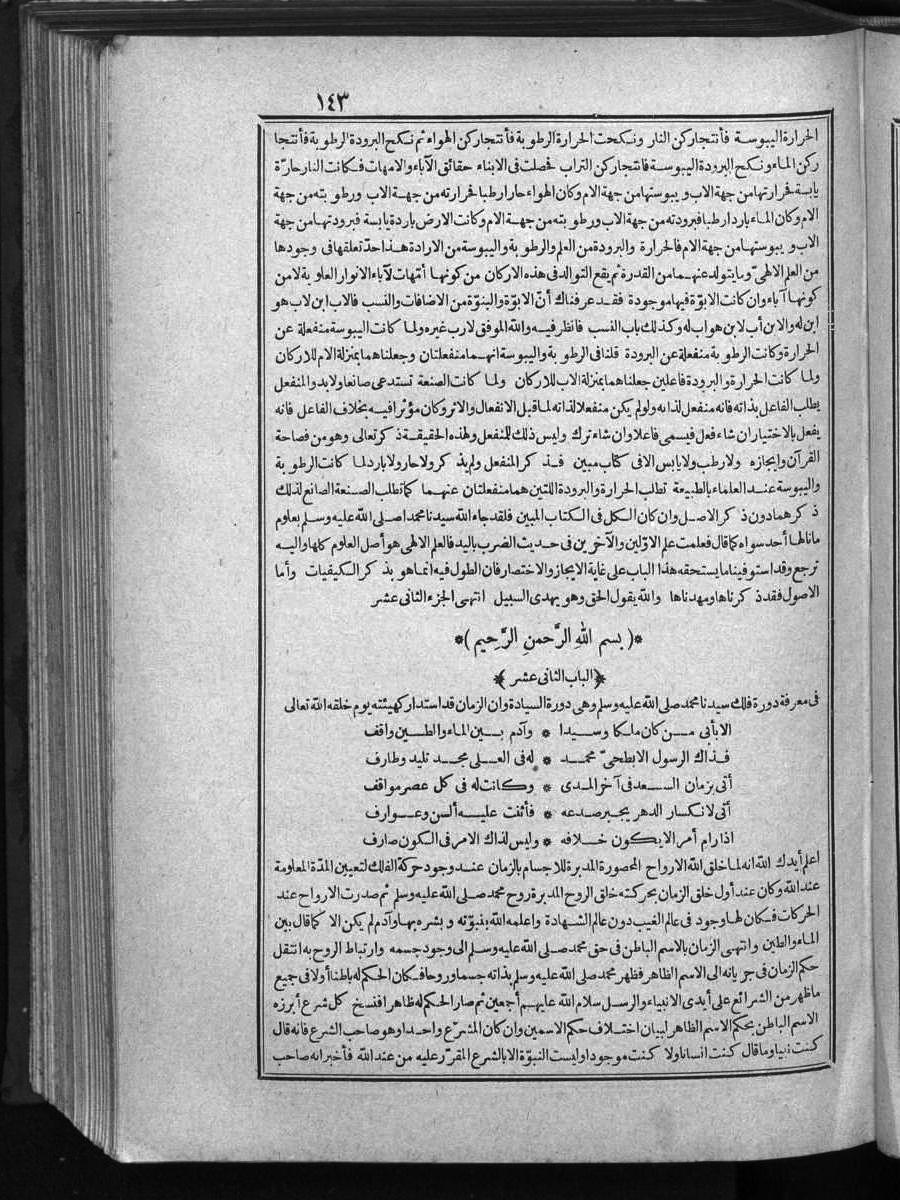 ١٤٣
الحرارة اليبوسة فأنتجا ركن النار ونكحت الحرارة الرطوبة فأنتجا ركن الهواء ثم نكح البرودة الرطوبة فأنتجا
ركن الماء ونكح البرودة اليبوسة فانتجا ركن التراب فحصلت فى الابناء حقائق الآباء والامهات فكانت النار حارّة
يابسة فحرارتها من جهة الاب ويبوستها من جهة الام وكان الهواء حارا رطبا فحرارته من جهة الاب ورطوبته من جهة
الام وكان الماء باردا رطبا فبرودته من جهة الاب ورطوبته من جهة الام وكانت الارض باردة يابسة فبرودتها من جهة
الاب ويبوستها من جهة الام فالحرارة والبرودة من العلم والرطوبة واليبوسة من الارادة هذا حدّ تعلقها فى وجودها
من العلم الالهىّ وما يتولد عنهما من القدرة ثم يقع التوالد فى هذه الاركان من كونها أمّهات لآباء الانوار العلوية لا من
كونها آباء وان كانت الابوّة فيها موجودة فقد عرفناك أنّ الابوّة والبنوّة من الاضافات والنسب فالاب ابن لاب هو
ابن له والابن أب لابن هو اب له وكذلك باب النسب فانظر فيه والله الموفق لا رب غيره ولما كانت اليبوسة منفعلة عن
الحرارة وكانت الرطوبة منفعلة عن البرودة قلنا فى الرطوبة واليبوسة انهما منفعلتان وجعلناهما بمنزلة الام للاركان
ولما كانت الحرارة والبرودة فاعلين جعلناهما بمنزلة الاب للاركان ولما كانت الصنعة تستدعى صانعا ولا بد والمنفعل
يطلب الفاعل بذاته فانه منفعل لذاته ولو لم يكن منفعلا لذاته لما قبل الانفعال والاثر وكان مؤثرا فيه بخلاف الفاعل فانه
يفعل بالاختيار ان شاء فعل فيسمى فاعلا وان شاء ترك وليس ذلك للمنفعل ولهذه الحقيقة ذكر تعالى وهو من فصاحة
القرآن وايجازه ولا رطب ولا يابس الا فى كتاب مبين فذكر المنفعل ولم يذكر ولا حار ولا بارد لما كانت الرطوبة
واليبوسة عند العلماء بالطبيعة تطلب الحرارة والبرودة اللتين هما منفعلتان عنهما كما تطلب الصنعة الصانع لذلك
ذكرهما دون ذكر الاصل وان كان الكل فى الكتاب المبين فلقد جاء الله سيدنا محمدا صلى الله عليه وسلم بعلوم
ما نالها أحد سواه كما قال فعلمت علم الاوّلين والآخرين فى حديث الضرب باليد فالعلم الالهى هو أصل العلوم كلها واليه
ترجع وقد استوفينا ما يستحقه هذا الباب على غاية الايجاز والاختصار فان الطول فيه انما هو بذكر الكيفيات وأما
الاصول فقد ذكرناها ومهدناها والله يقول الحق وهو يهدى السبيل انتهى الجزء الثانى عشر
*( بسم الله الرَّحمنِ الرَّحيم )*
﴿الباب الثانى عشر﴾
فى معرفة دورة فلك سيدنا محمد صلى الله عليه وسلم وهى دورة السيادة وان الزمان قد استدار كهيئته يوم خلقه الله تعالى
الا بأبى من كان ملكا وسيدا * وآدم بين الماء والطين واقف
فذاك الرسول الابطحىّ محمد * له فى العلى مجد تليد وطارف
أتى بزمان السعد فى آخر المدى * وكانت له فى كل عصر مواقف
أتى لانكسار الدهر يجبر صدعه * فأثنت عليه ألسن وعوارف
اذا رام أمرا لا يكون خلافه * وليس لذاك الامر فى الكون صارف
اعلم أيدك الله انه لما خلق الله الارواح المحصورة المدبرة للاجسام بالزمان عند وجود حركة الفلك لتعيين المدّة المعلومة
عند الله وكان عند أول خلق الزمان بحركته خلق الروح المدبرة روح محمد صلى الله عليه وسلم ثم صدرت الارواح عند
الحركات فكان لها وجود فى عالم الغيب دون عالم الشهادة واعلمه الله بنبوّته وبشره بها وآدم لم يكن الا كما قال بين
الماء والطين وانتهى الزمان بالاسم الباطن فى حق محمد صلى الله عليه وسلم الى وجود جسمه وارتباط الروح به انتقل
حكم الزمان فى جريانه الى الاسم الظاهر فظهر محمد صلى الله عليه وسلم بذاته جسما وروحا فكان الحكم له باطنا أولا فى جميع
ما ظهر من الشرائع على أيدى الانبياء والرسل سلام الله عليهم أجمعين ثم صار الحكم له ظاهرا فنسخ كل شرع أبرزه
الاسم الباطن بحكم الاسم الظاهر لبيان اختلاف حكم الاسمين وان كان المشرّع واحدا وهو صاحب الشرع فانه قال
كنت نبيا وما قال كنت انسانا ولا كنت موجودا وليست النبوّة الا بالشرع المقرّر عليه من عند الله فأخبر انه صاحب